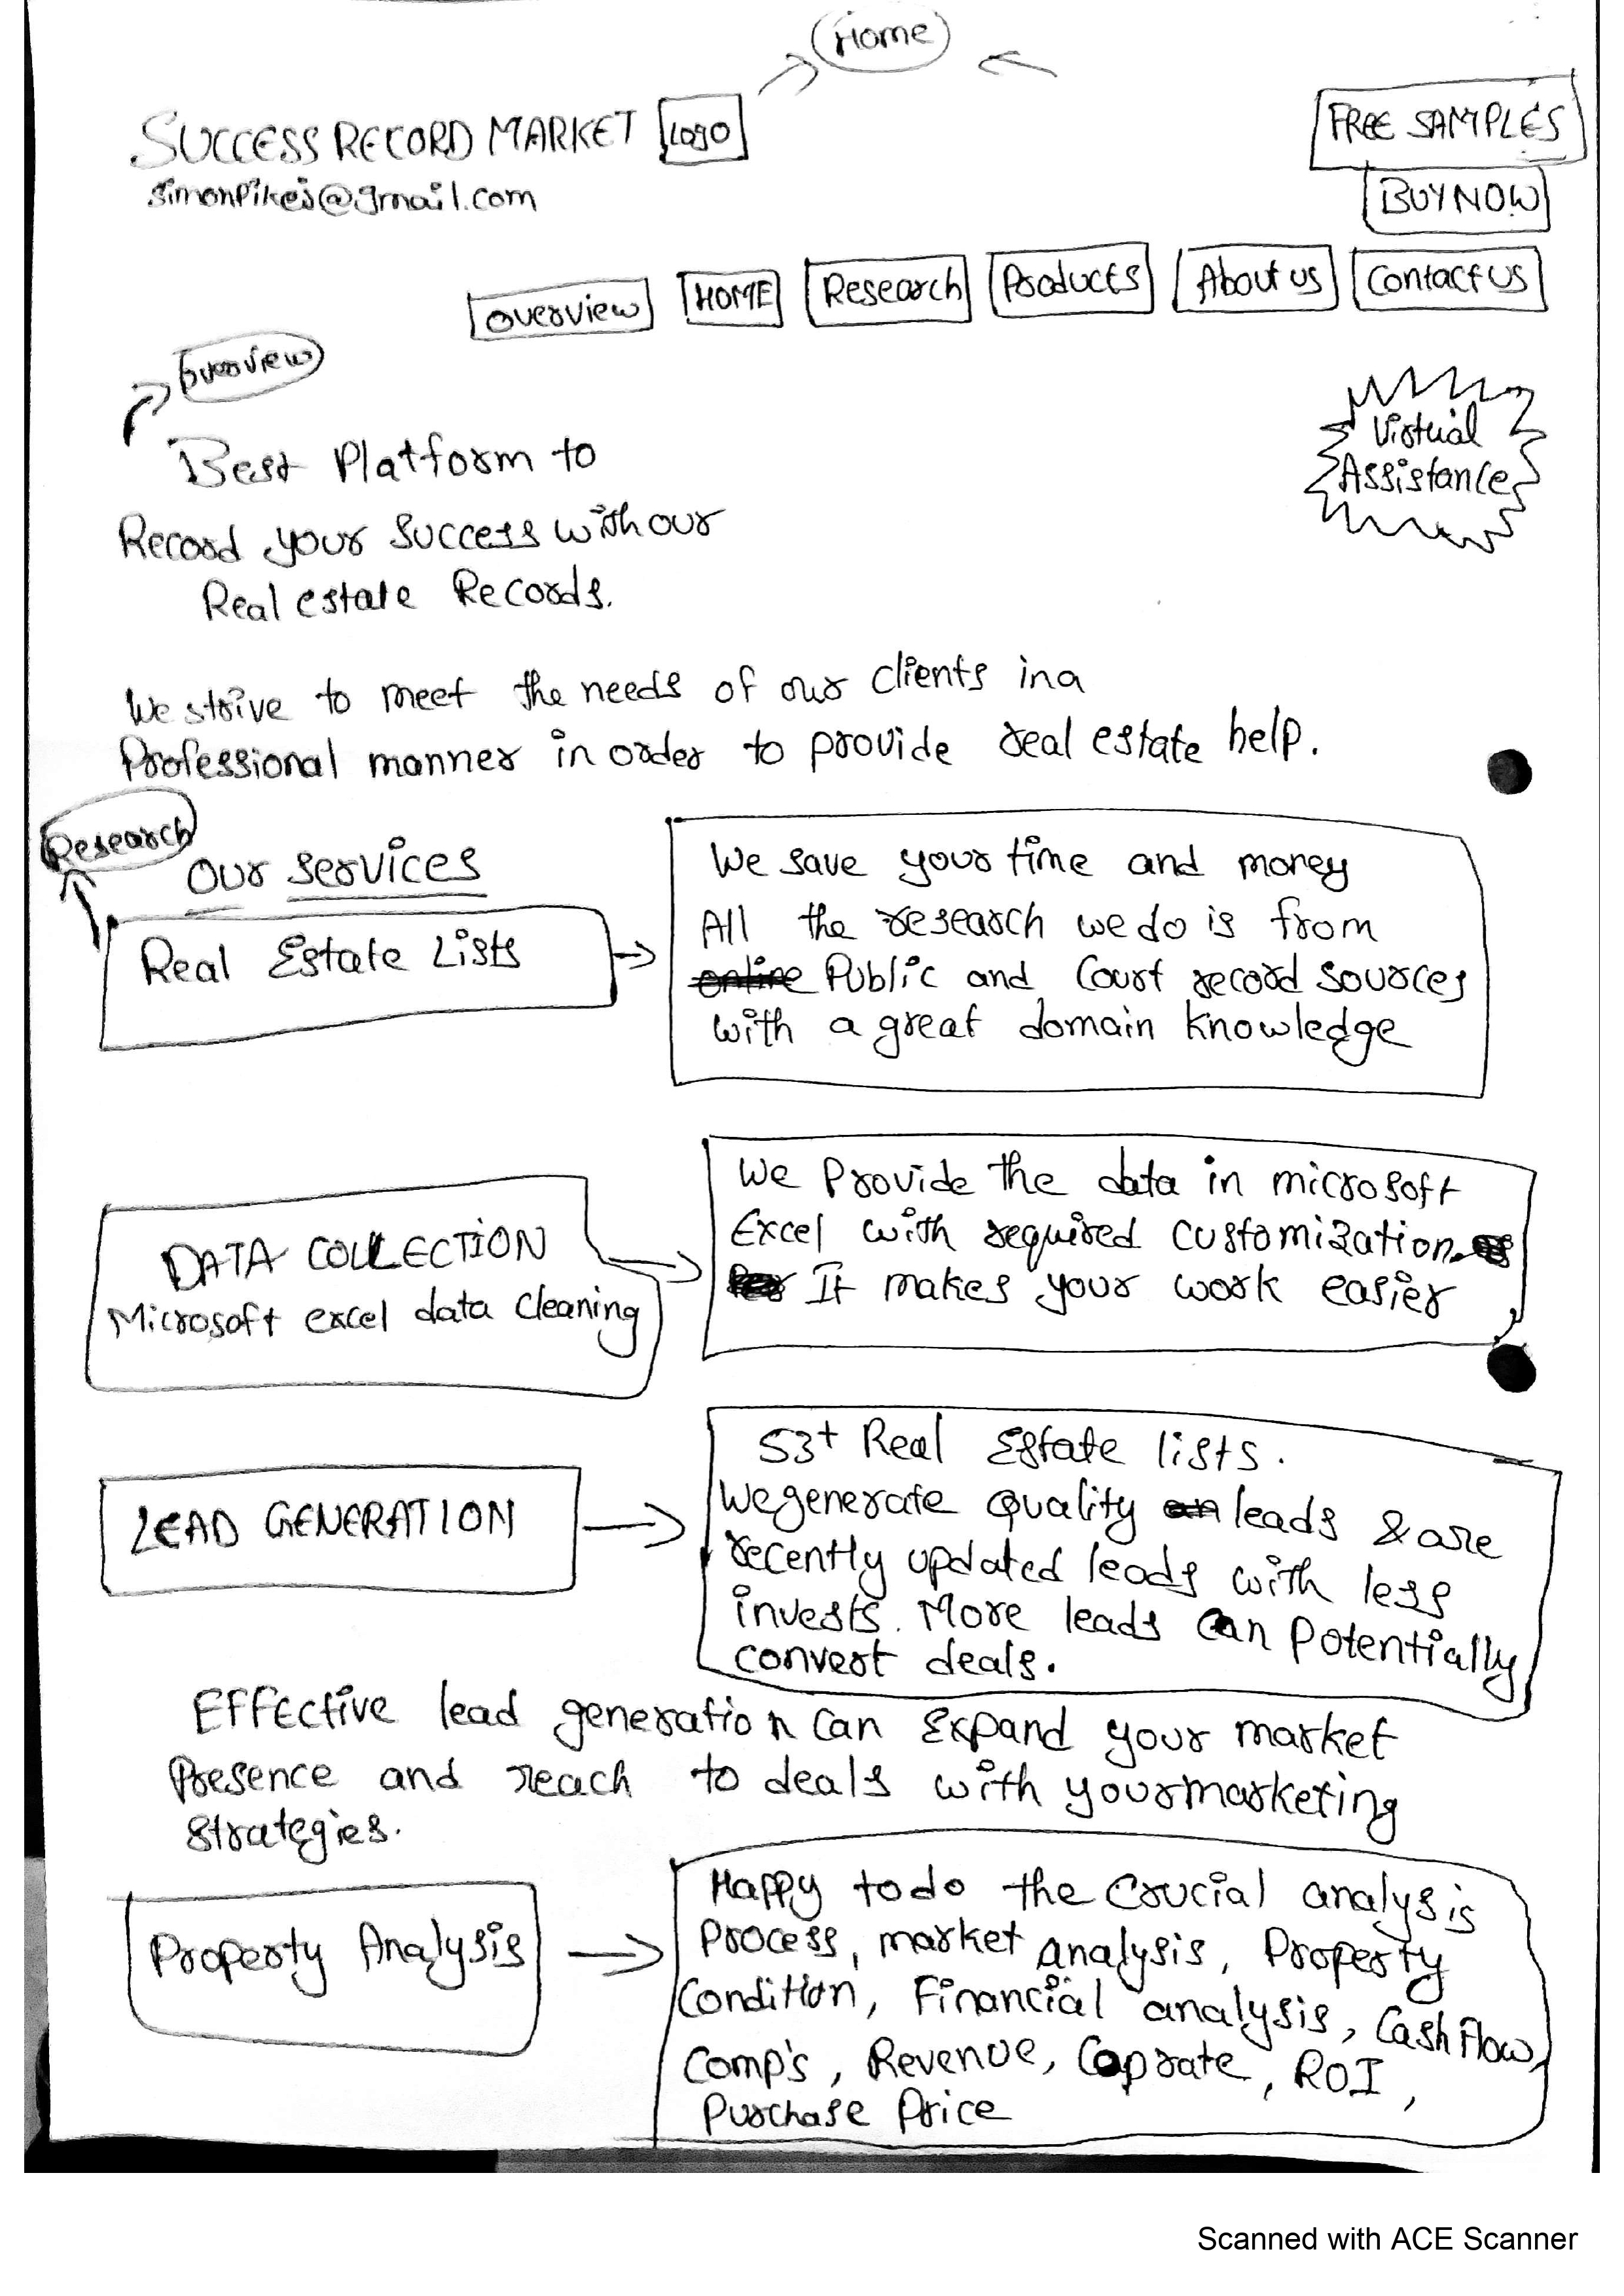 Home
SUCCESS RECORD MARKET LOGO
FREE SAMPLES
BUY NOW
Overview HOME Research Products About us Contact us
Overview
Virtual
Assistance
Best Platform to
Record your success with our
Real estate Records.
We strive to meet the needs of our clients in a
Professional manner in order to provide real estate help.
Research
Our services
Real Estate Lists
We save your time and money
All the research we do is from
online Public and Court record sources
with a great domain knowledge
DATA COLLECTION
Microsoft excel data cleaning
We Provide the data in microsoft
Excel with required customization.
It makes your work easier
LEAD GENERATION
53+ Real Estate lists.
We generate Quality leads & are
recently updated leads with less
invests. More leads can Potentially
convert deals.
Effective lead generation can Expand your market
Presence and reach to deals with your marketing
strategies.
Property Analysis
Happy to do the Crucial analysis
Process, market analysis, Property
Condition, Financial analysis, Cash flow,
Comp's, Revenue, Caprate, ROI,
Purchase Price
Scanned with ACE Scanner